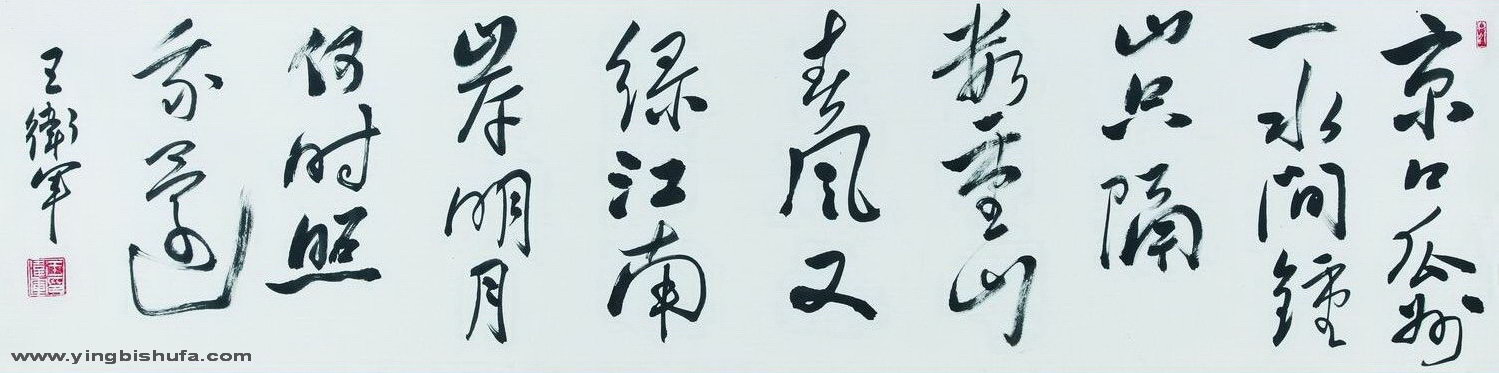 京口瓜州
一水间鍾
山只隔
数重山
春风又
绿江南
岸明月
何时照
我还
王衛军
www.yingbishufa.com